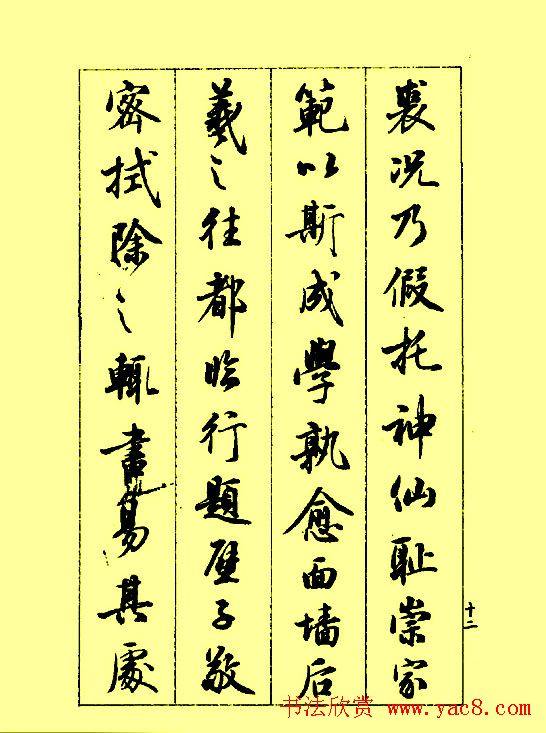 裘况乃假托神仙耻崇家
範以斯成學孰愈面墙后
羲之往都临行題壁子敬
密拭除之輒書易其處
十二
书法欣赏 www.yac8.com